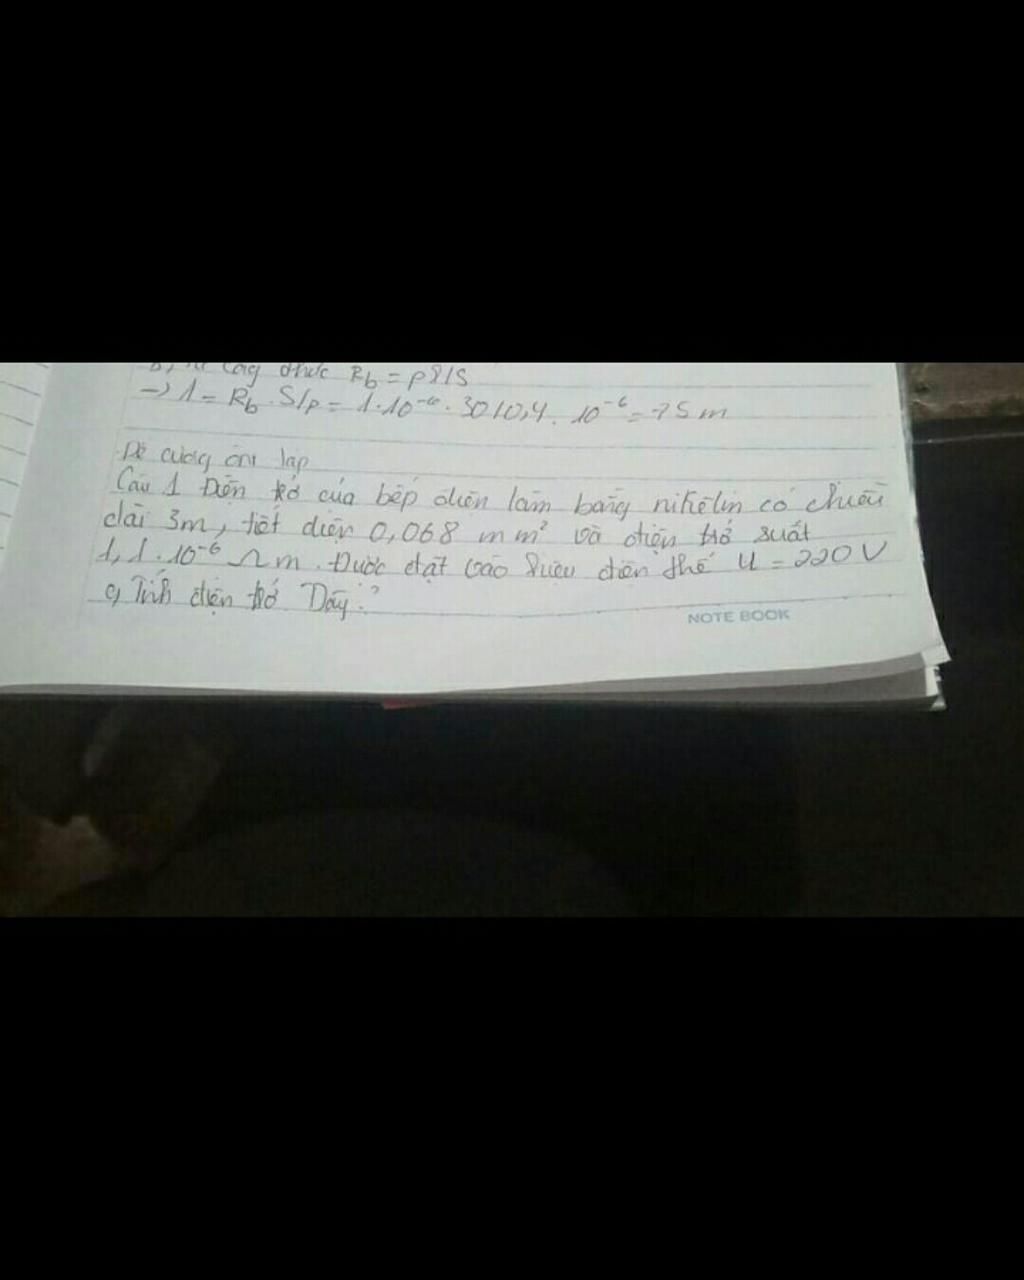 công thức Rb = pl/S
-> 1 = Rb . S/p = 1.10⁻⁶ . 30/0,4 . 10⁻⁶ = 75 m
Đề cương ôn tập
Câu 1 Điện trở của bếp điện làm bằng nikêlin có chiều
dài 3m, tiết diện 0,068 mm² và điện trở suất
1,1.10⁻⁶ Ωm. Được đặt vào hiệu điện thế U = 220V
a, Tính điện trở Dây?
NOTE BOOK